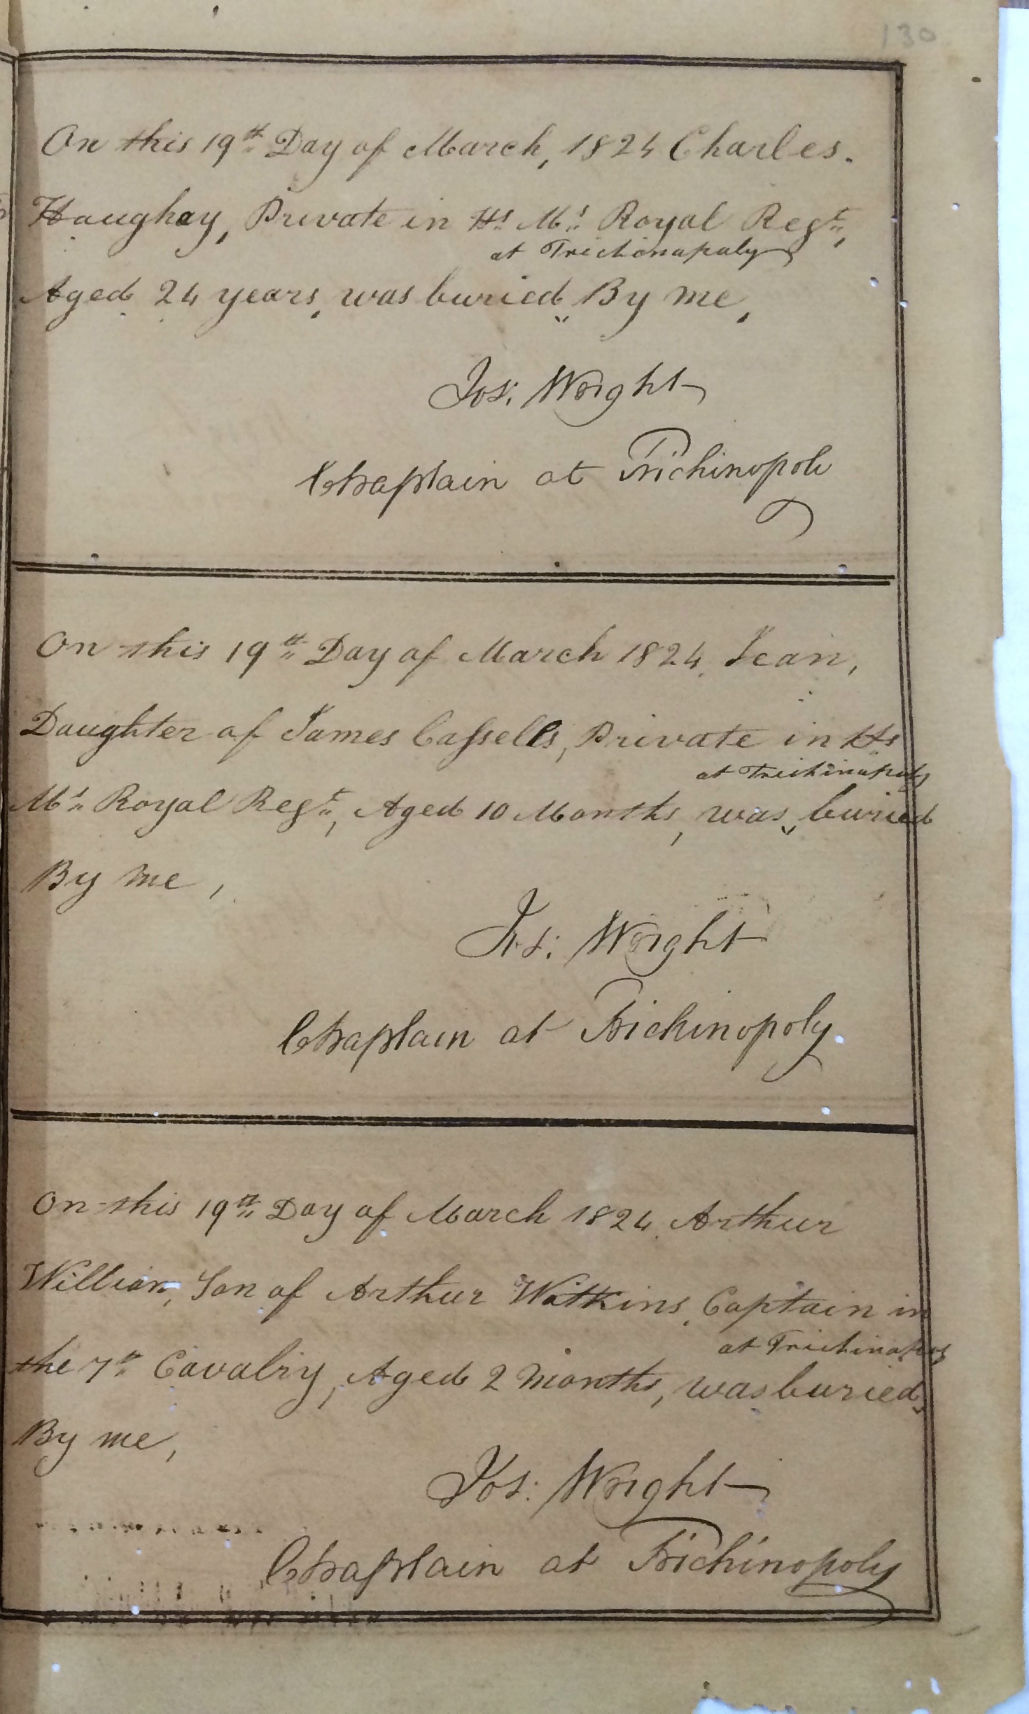 130
On this 19th Day of March, 1824 Charles.
Haughey, Private in Hs Ms Royal Regt,
at Trichonapaly
Aged 24 years, was buried By me,
Jos: Wright
Chaplain at Trichinopoly
On this 19th Day of March 1824, Jean,
Daughter of James Cassells, Private in Hs
at Trichinapoly
Ms Royal Regt, Aged 10 Months, was buried
By me,
Jos: Wright
Chaplain at Trichinopoly.
On this 19th Day of March 1824, Arthur
William, Son of Arthur Watkins, Captain in
at Trichinapoly
the 7th Cavalry, Aged 2 Months, was buried,
By me,
Jos: Wright
Chaplain at Trichinopoly